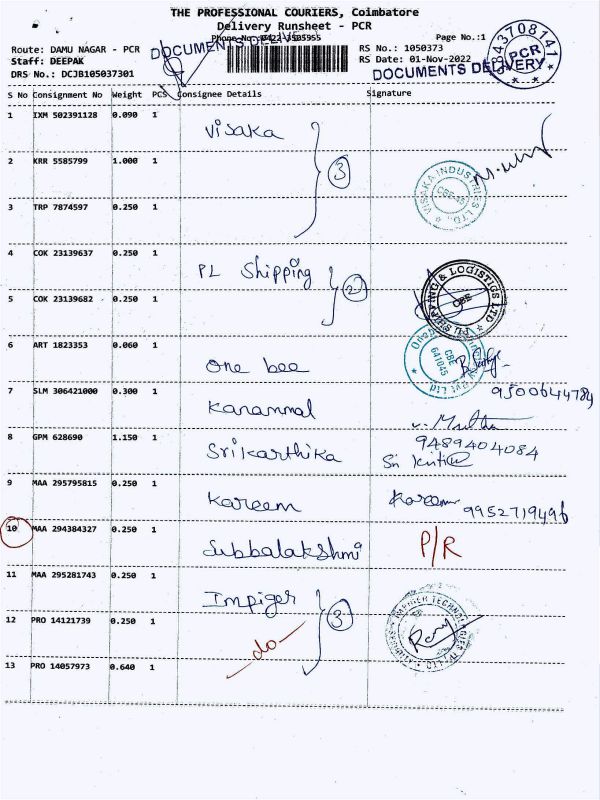 THE PROFESSIONAL COURIERS, Coimbatore
Delivery Runsheet - PCR
Route: DAMU NAGAR - PCR
Staff: DEEPAK
DRS No.: DCJB105037301
Page No.:1
RS No.: 1050373
RS Date: 01-Nov-2022
DOCUMENTS DELIVERY
DOCUMENTS DELIVERY
9843708141
PCR
S No Consignment No Weight PCS Consignee Details Signature
1 IXM 502391128 0.090 1 Visaka
2 KRR 5585799 1.000 1 3
VISAKA INDUSTRIES LTD.,
CBE-45
3 TRP 7874597 0.250 1
4 COK 23139637 0.250 1 PL Shipping
5 COK 23139682 0.250 1 2
PL SHIPPING & LOGISTICS LTD
CBE
6 ART 1823353 0.060 1 One bee
CBE
641045
Pvt Ltd
7 SLM 306421000 0.300 1 Karammal 9500644784
8 GPM 628690 1.150 1 Srikarthika 9489404084
9 MAA 295795815 0.250 1 Kareem Kareem 9952719496
10 MAA 294384327 0.250 1 Subbalakshmi P/R
11 MAA 295281743 0.250 1 Impiger
12 PRO 14121739 0.250 1 3
-do-
IMPIGER TECHNOLOGIES PVT LTD
13 PRO 14057973 0.640 1